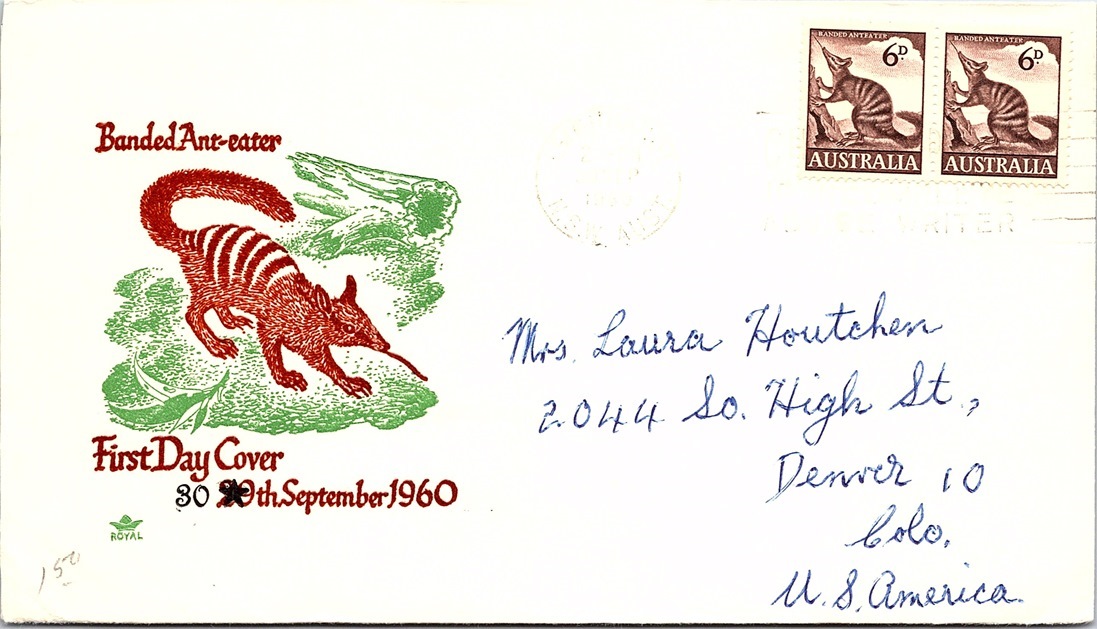 BANDED ANTEATER
6D.
AUSTRALIA
BANDED ANTEATER
6D.
AUSTRALIA
Banded Ant-eater
Mrs. Laura Houtchen
2044 So. High St.,
Denver 10
Colo.
U.S. America.
First Day Cover
30 th. September 1960
ROYAL
150